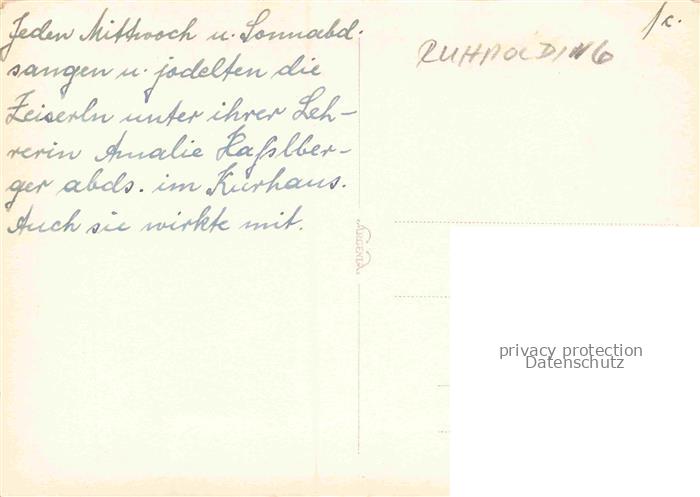 Jeden Mittwoch u. Sonnabd.
sangen u. jodelten die
Zeiserln unter ihrer Leh-
rerin Amalie Haßlber-
ger abds. im Kurhaus.
Auch sie wirkte mit.
RUHPOLDING
privacy protection
Datenschutz